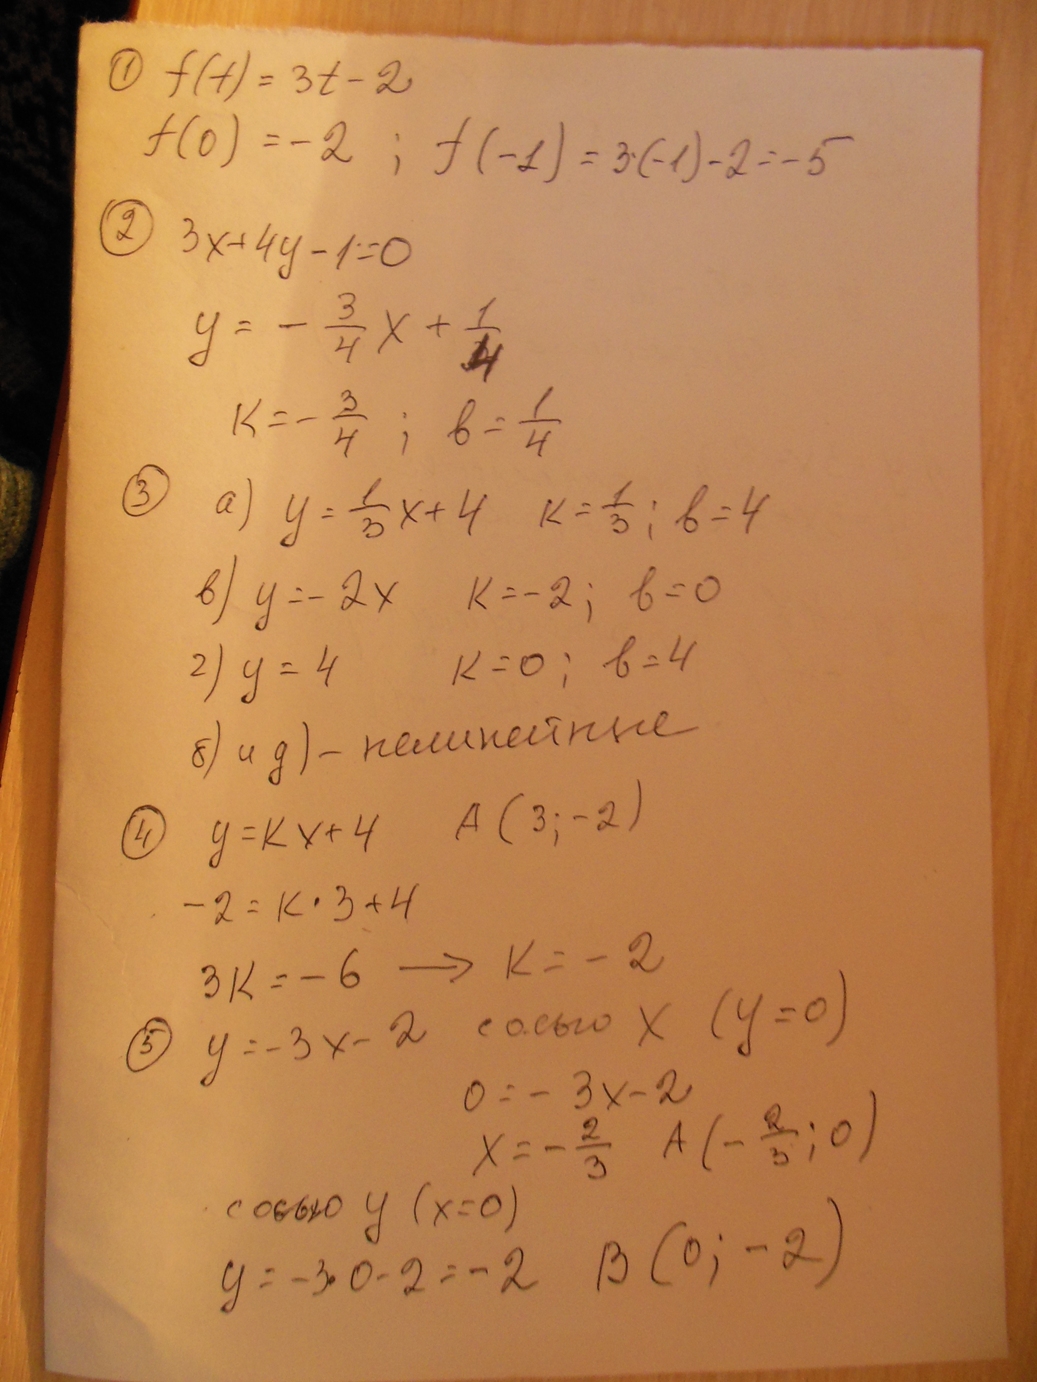 ① f(t) = 3t - 2
f(0) = -2 ; f(-1) = 3·(-1) - 2 = -5
② 3x+4y-1=0
y = - 3/4 x + 1/4
K = - 3/4 ; в = 1/4
③ а) y = 1/3 x + 4 K = 1/3 ; в = 4
в) y = -2x K = -2 ; в = 0
г) y = 4 K = 0 ; в = 4
б) и д) - нелинейные
④ y = Kx + 4 A (3; -2)
-2 = K · 3 + 4
3K = -6 → K = -2
⑤ y = -3x - 2 с осью X (y = 0)
0 = - 3x - 2
x = - 2/3 A (- 2/3 ; 0)
с осью y (x = 0)
y = -3·0 - 2 = -2 B (0; -2)